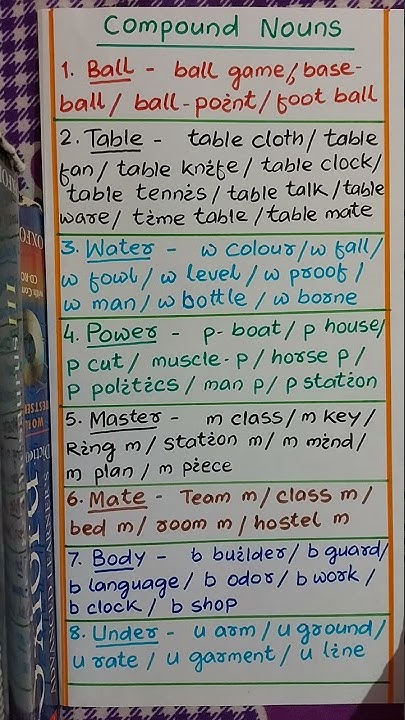 Compound Nouns
1. Ball - ball game / base-
ball / ball-point / foot ball
2. Table - table cloth / table
fan / table knife / table clock /
table tennis / table talk / table
ware / time table / table mate
3. Water - w colour / w fall /
w fowl / w level / w proof /
w man / w bottle / w borne
4. Power - p-boat / p house /
p cut / muscle-p / horse p /
p politics / man p / p station
5. Master - m class / m key /
Ring m / station m / m mind /
m plan / m piece
6. Mate - Team m / class m /
bed m / room m / hostel m
7. Body - b builder / b guard /
b language / b odor / b work /
b clock / b shop
8. Under - u arm / u ground /
u rate / u garment / u line